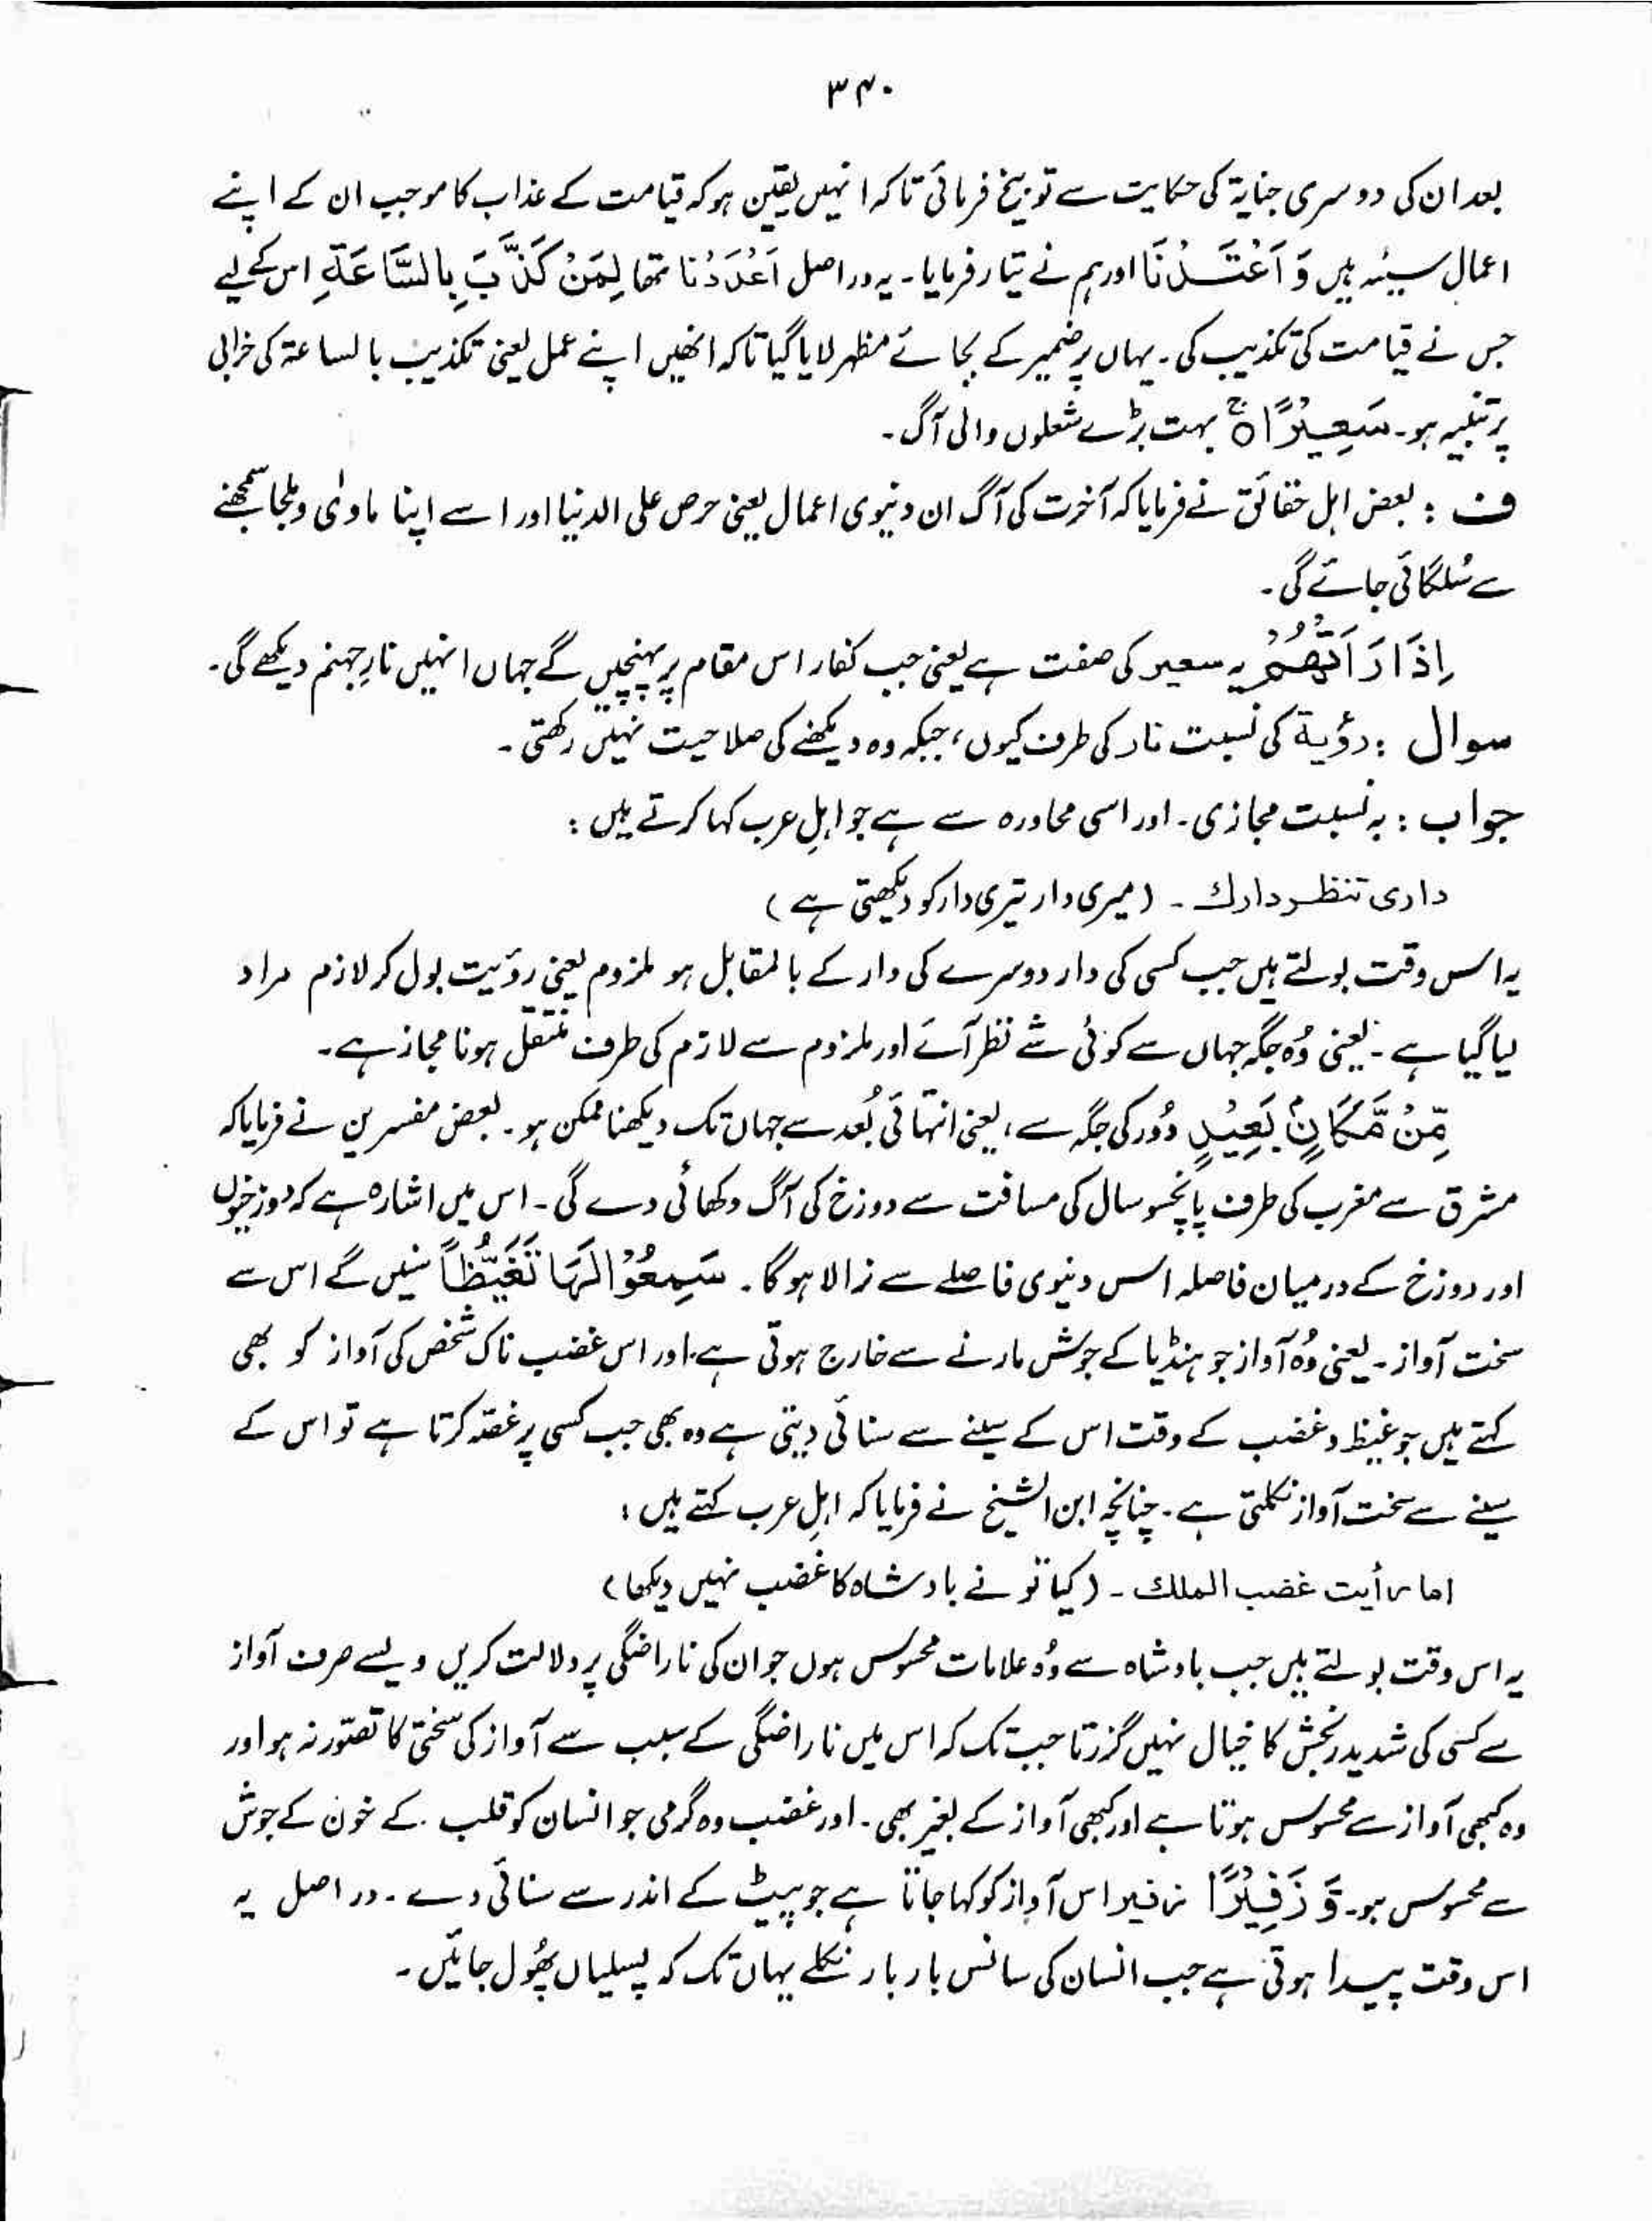 ۳۴۰
بعد ان کی دوسری جنایة کی حکایت سے توبیخ فرمائی تاکہ انہیں یقین ہو کہ قیامت کے عذاب کا موجب ان کے اپنے
اعمال سیئہ ہیں وَ اَعْتَدْنَا اور ہم نے تیار فرمایا۔ یہ دراصل اَعْدَدْنَا تھا لِمَنْ كَذَّبَ بِالسَّاعَةِ اس کے لیے
جس نے قیامت کی تکذیب کی۔ یہاں پر ضمیر کے بجائے مظہر لایا گیا تاکہ انھیں اپنے عمل یعنی تکذیب بالساعة کی خرابی
پر تنبیہ ہو۔ سَعِيْرًا ۚ بہت بڑے شعلوں والی آگ۔
ف : بعض اہل حقائق نے فرمایا کہ آخرت کی آگ ان دنیوی اعمال یعنی حرص علی الدنیا اور اسے اپنا ماوٰی و ملجا سمجھنے
سے سُلگائی جائے گی۔
اِذَا رَاَتْهُمْ یہ سعیر کی صفت ہے یعنی جب کفار اس مقام پر پہنچیں گے جہاں انہیں نارِ جہنم دیکھے گی۔
سوال : رؤیة کی نسبت نار کی طرف کیوں، جبکہ وہ دیکھنے کی صلاحیت نہیں رکھتی۔
جواب : یہ نسبت مجازی۔ اور اسی محاورہ سے ہے جو اہلِ عرب کہا کرتے ہیں :
داری تنظر دارك ۔ (میری دار تیری دار کو دیکھتی ہے)
یہ اس وقت بولتے ہیں جب کسی کی دار دوسرے کی دار کے بالمقابل ہو ملزوم یعنی رؤیت بول کر لازم مراد
لیا گیا ہے۔ یعنی وُہ جگہ جہاں سے کوئی شے نظر آئے اور ملزوم سے لازم کی طرف منتقل ہونا مجاز ہے۔
مِّنْ مَّكَانٍۭ بَعِيْدٍ دُور کی جگہ سے، یعنی انتہائی بُعد سے جہاں تک دیکھنا ممکن ہو۔ بعض مفسرین نے فرمایا کہ
مشرق سے مغرب کی طرف پانچسو سال کی مسافت سے دوزخ کی آگ دکھائی دے گی۔ اس میں اشارہ ہے کہ دوزخیوں
اور دوزخ کے درمیان فاصلہ اس دنیوی فاصلے سے نرالا ہوگا۔ سَمِعُوْا لَهَا تَغَيُّظًا سنیں گے اس سے
سخت آواز۔ یعنی وُہ آواز جو ہنڈیا کے جوش مارنے سے خارج ہوتی ہے۔ اور اس غضب ناک شخص کی آواز کو بھی
کہتے ہیں جو غیظ و غضب کے وقت اس کے سینے سے سنائی دیتی ہے وہ بھی جب کسی پر غصّہ کرتا ہے تو اس کے
سینے سے سخت آواز نکلتی ہے۔ چنانچہ ابن الشیخ نے فرمایا کہ اہلِ عرب کہتے ہیں :
اما رأیت غضب الملك ۔ (کیا تُو نے بادشاہ کا غضب نہیں دیکھا)
یہ اس وقت بولتے ہیں جب بادشاہ سے وُہ علامات محسوس ہوں جو ان کی ناراضگی پر دلالت کریں ویسے صرف آواز
سے کسی کی شدید رنجش کا خیال نہیں گزرتا جب تک کہ اس میں ناراضگی کے سبب سے آواز کی سختی کا تصوّر نہ ہو اور
وہ کبھی آواز سے محسوس ہوتا ہے اور کبھی آواز کے بغیر بھی۔ اور غضب وہ گرمی جو انسان کو قلب کے خون کے جوش
سے محسوس ہو۔ وَّ زَفِيْرًا زفیر اس آواز کو کہا جاتا ہے جو پیٹ کے اندر سے سنائی دے۔ دراصل یہ
اس وقت پیدا ہوتی ہے جب انسان کی سانس بار بار نکلے یہاں تک کہ پسلیاں پُھول جائیں۔